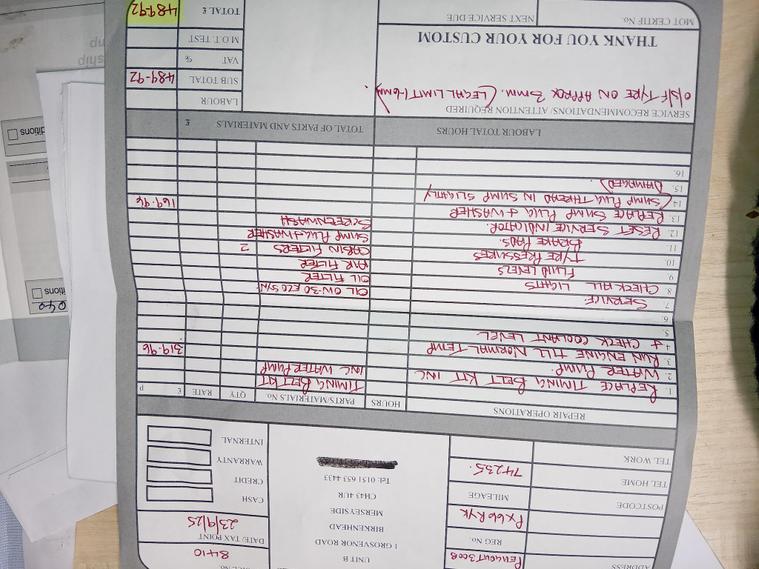 8410
DATE/TAX POINT
23/9/25
CASH
CREDIT
WARRANTY
INTERNAL
UNIT B
1 GROSVENOR ROAD
BIRKENHEAD
MERSEYSIDE
CH43 4UR
Tel: 0151 653 4433
ADDRESS
PEUGEOT 3008
POSTCODE
REG No.
PX66RYK
TEL HOME
MILEAGE
74235.
TEL WORK
REPAIR OPERATIONS HOURS PARTS/MATERIALS No. QTY RATE £ P
1. REPLACE TIMING BELT KIT INC TIMING BELT KIT
2. WATER PUMP. INC WATER PUMP
3. RUN ENGINE TILL NORMAL TEMP 319.96
4. + CHECK COOLANT LEVEL
5.
6.
7. SERVICE
8. CHECK ALL LIGHTS OIL 0W-30 ECO SYN
9. FLUID LEVELS OIL FILTER
10. TYRE PRESSURES AIR FILTER
11. BRAKE PADS. CABIN FILTERS 2
12. RESET SERVICE INDICATOR. SUMP PLUG + WASHER
13. REPLACE SUMP PLUG + WASHER SCREENWASH
14. (SUMP PLUG THREAD IN SUMP SLIGHTLY 169.96
15. DAMAGED)
16.
LABOUR TOTAL HOURS TOTAL OF PARTS AND MATERIALS £
SERVICE RECOMMENDATIONS/ATTENTION REQUIRED
O/S/F TYRE ON APPROX 3mm. (LEGAL LIMIT 1.6mm)
THANK YOU FOR YOUR CUSTOM
MOT CERTIF No. NEXT SERVICE DUE
LABOUR
SUB TOTAL 489-92
VAT %
M.O.T. TEST
TOTAL £ 489-92